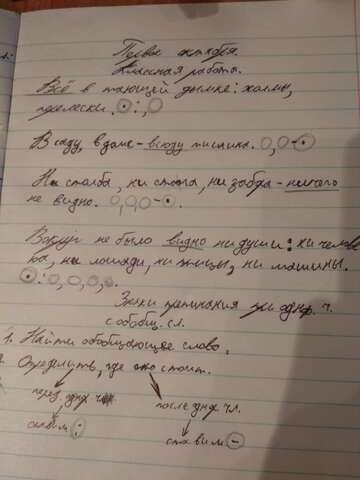 Первое октября.
Классная работа.
Всё в тающей дымке: холмы,
перелески. ⊙: О, О
В саду, в доме - всюду тишина. О, О - ⊙
Ни столба, ни стога, ни забора - ничего
не видно. О, О, О - ⊙.
Вокруг не было видно ни души: ни челове
ка, ни лошади, ни птицы, ни машины.
⊙: О, О, О, О.
Знаки препинания при однр. ч.
с обобщ. сл.
1. Найти обобщающее слово.
2. Определить, где оно стоит.
перед однр чл. после однр чл.
ставим : ставим -